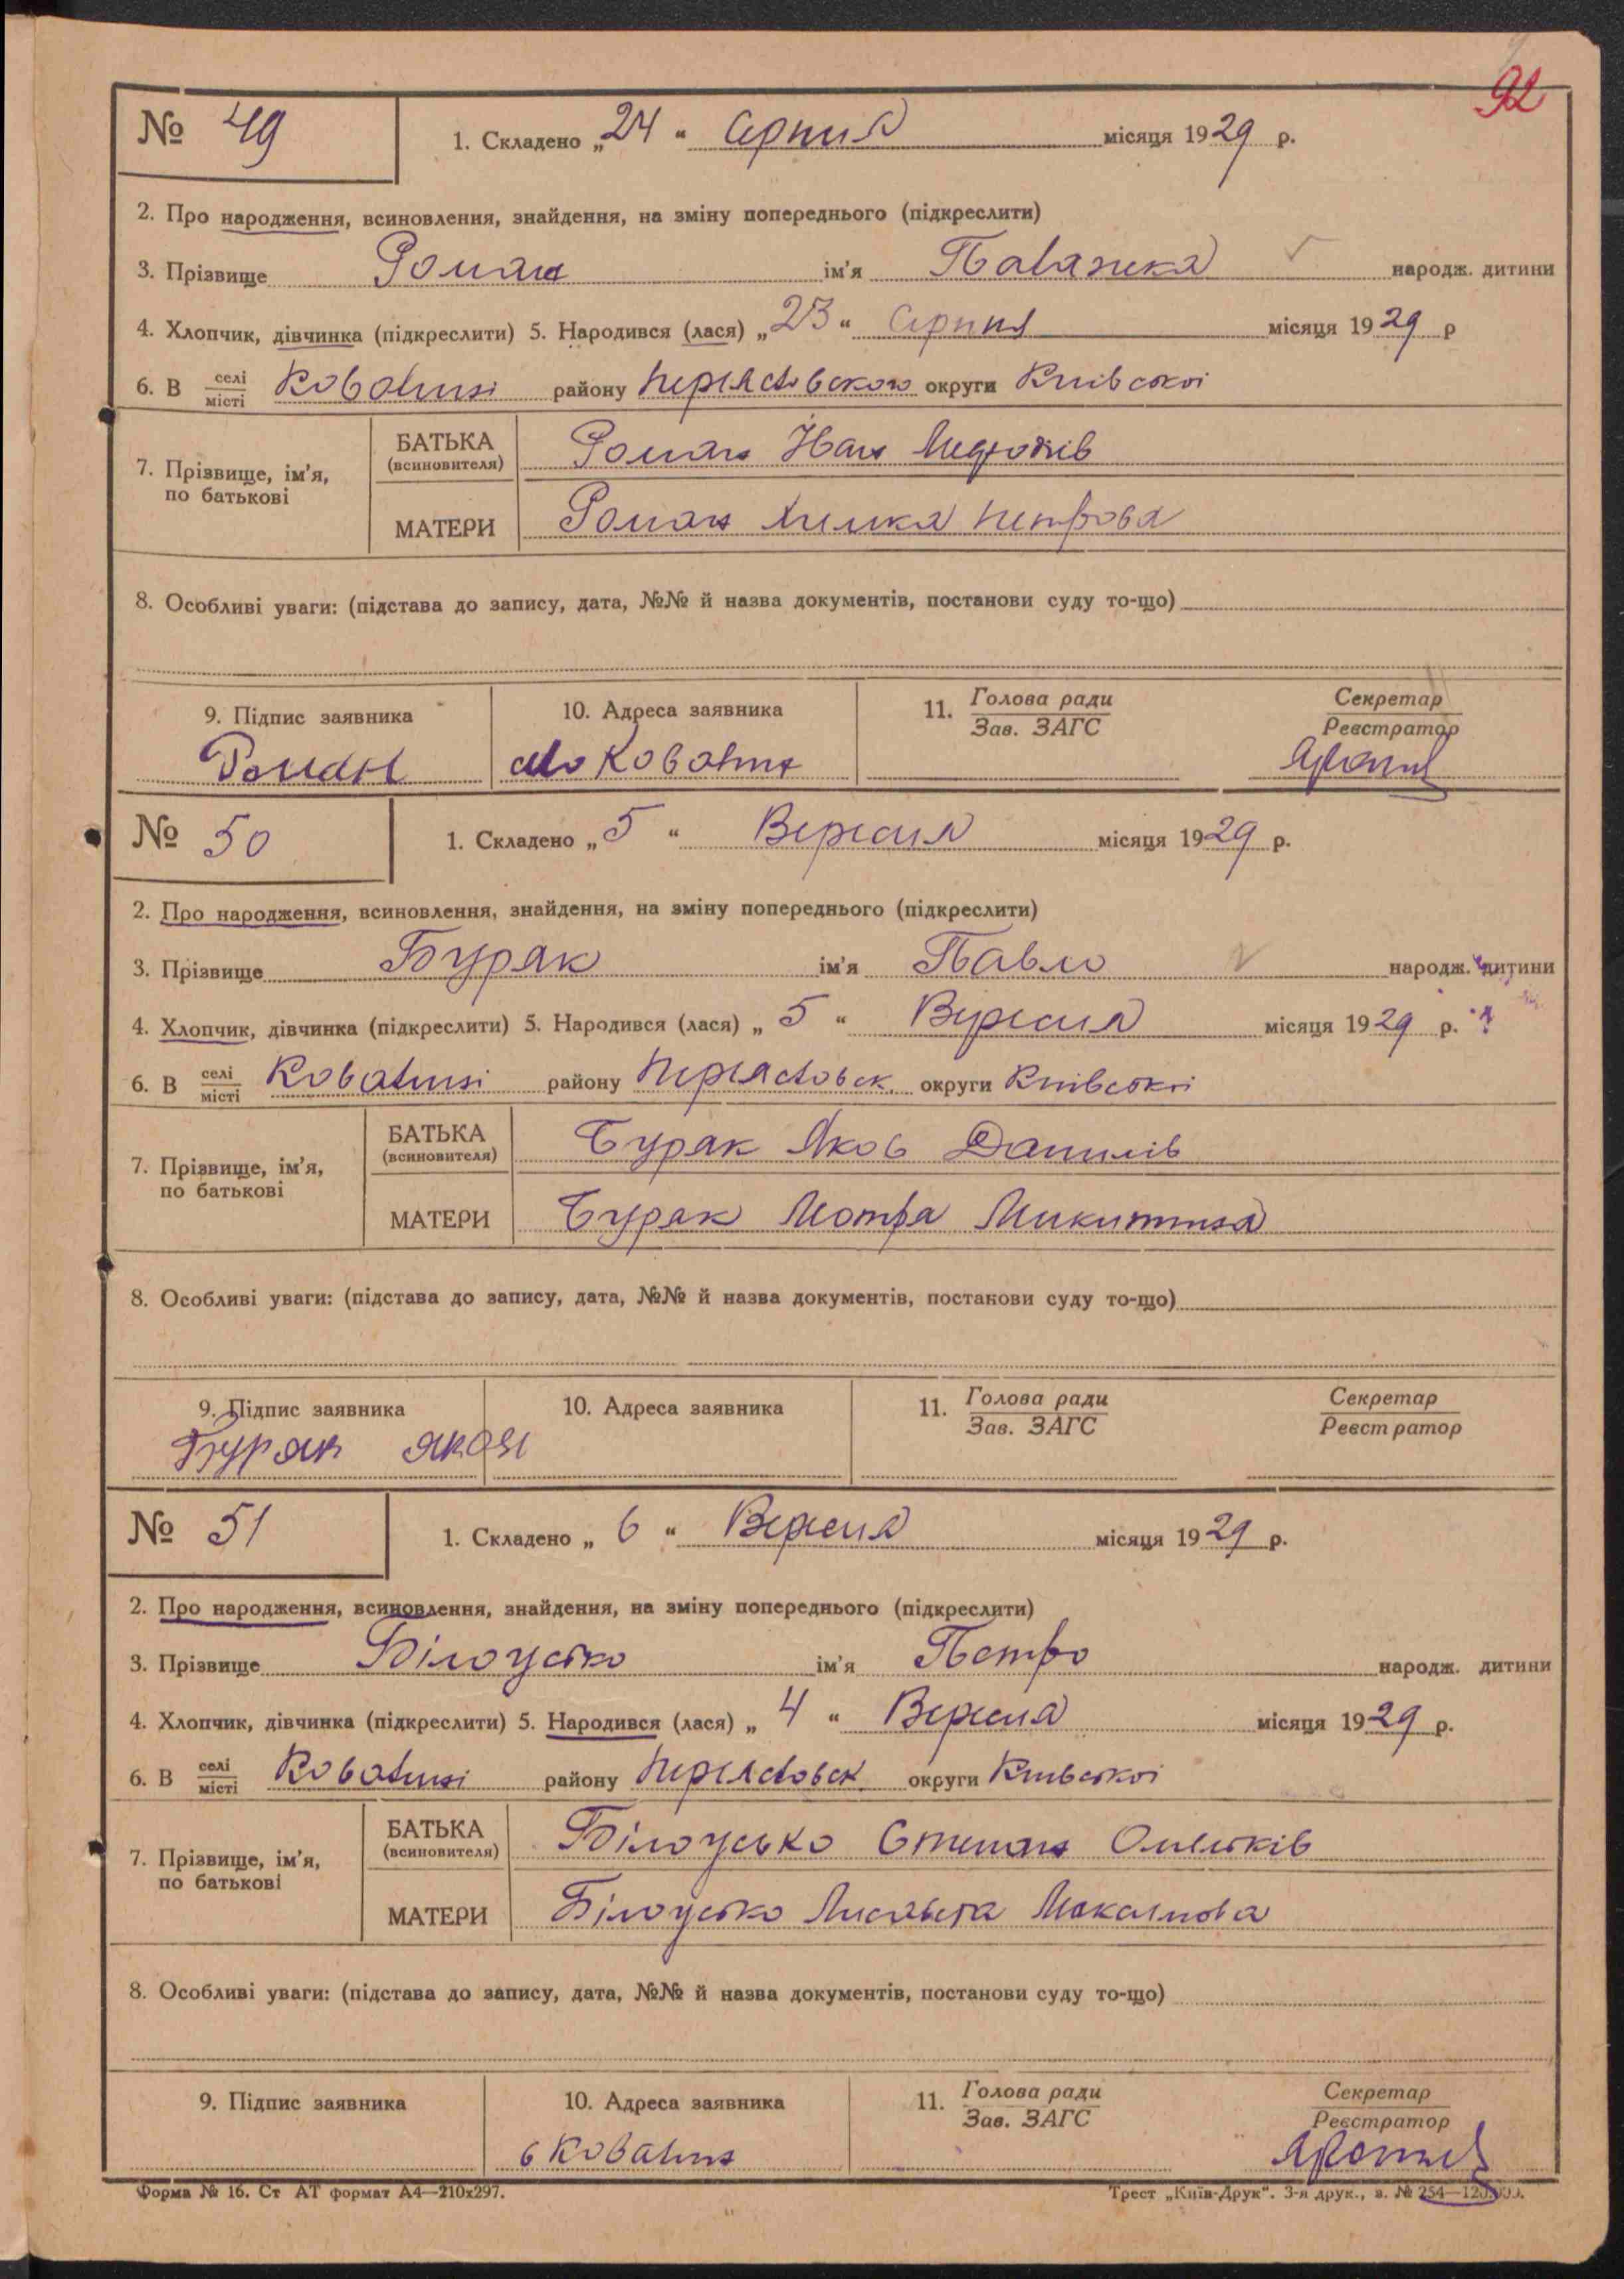 92
№ 49 1. Складено „24“ Серпня місяця 1929 р.
2. Про народження, всиновлення, знайдення, на зміну попереднього (підкреслити)
3. Прізвище Роман ім'я Палажка народж. дитини
4. Хлопчик, дівчинка (підкреслити) 5. Народився (лася) „23“ Серпня місяця 1929 р
6. В селі місті Ковалинсі району Переяславського округи Київської
7. Прізвище, ім'я, по батькові
БАТЬКА (всиновителя) Роман Іван
МАТЕРИ Роман Химка Петрова
8. Особливі уваги: (підстава до запису, дата, №№ й назва документів, постанови суду то-що)
9. Підпис заявника 10. Адреса заявника 11. Голова ради Зав. ЗАГС Секретар Реєстратор
Роман Ковалин
№ 50 1. Складено „5“ Вересня місяця 1929 р.
2. Про народження, всиновлення, знайдення, на зміну попереднього (підкреслити)
3. Прізвище Буряк ім'я Павло народж. дитини
4. Хлопчик, дівчинка (підкреслити) 5. Народився (лася) „5“ Вересня місяця 1929 р.
6. В селі місті Ковалинсі району Переяславськ. округи Київської
7. Прізвище, ім'я, по батькові
БАТЬКА (всиновителя) Буряк Яков Данилів
МАТЕРИ Буряк Мотря Микитина
8. Особливі уваги: (підстава до запису, дата, №№ й назва документів, постанови суду то-що)
9. Підпис заявника 10. Адреса заявника 11. Голова ради Зав. ЗАГС Секретар Реєстратор
Буряк Яков
№ 51 1. Складено „6“ Вересня місяця 1929 р.
2. Про народження, всиновлення, знайдення, на зміну попереднього (підкреслити)
3. Прізвище Білоусько ім'я Петро народж. дитини
4. Хлопчик, дівчинка (підкреслити) 5. Народився (лася) „4“ Вересня місяця 1929 р.
6. В селі місті Ковалинсі району Переяславськ округи Київської
7. Прізвище, ім'я, по батькові
БАТЬКА (всиновителя) Білоусько Степан Омельків
МАТЕРИ Білоусько Лисавета Максимова
8. Особливі уваги: (підстава до запису, дата, №№ й назва документів, постанови суду то-що)
9. Підпис заявника 10. Адреса заявника 11. Голова ради Зав. ЗАГС Секретар Реєстратор
с Ковалин
Форма № 16. Ст АТ формат А4—210х297. Трест „Київ-Друк“. 3-я друк., з. № 254—120.000.